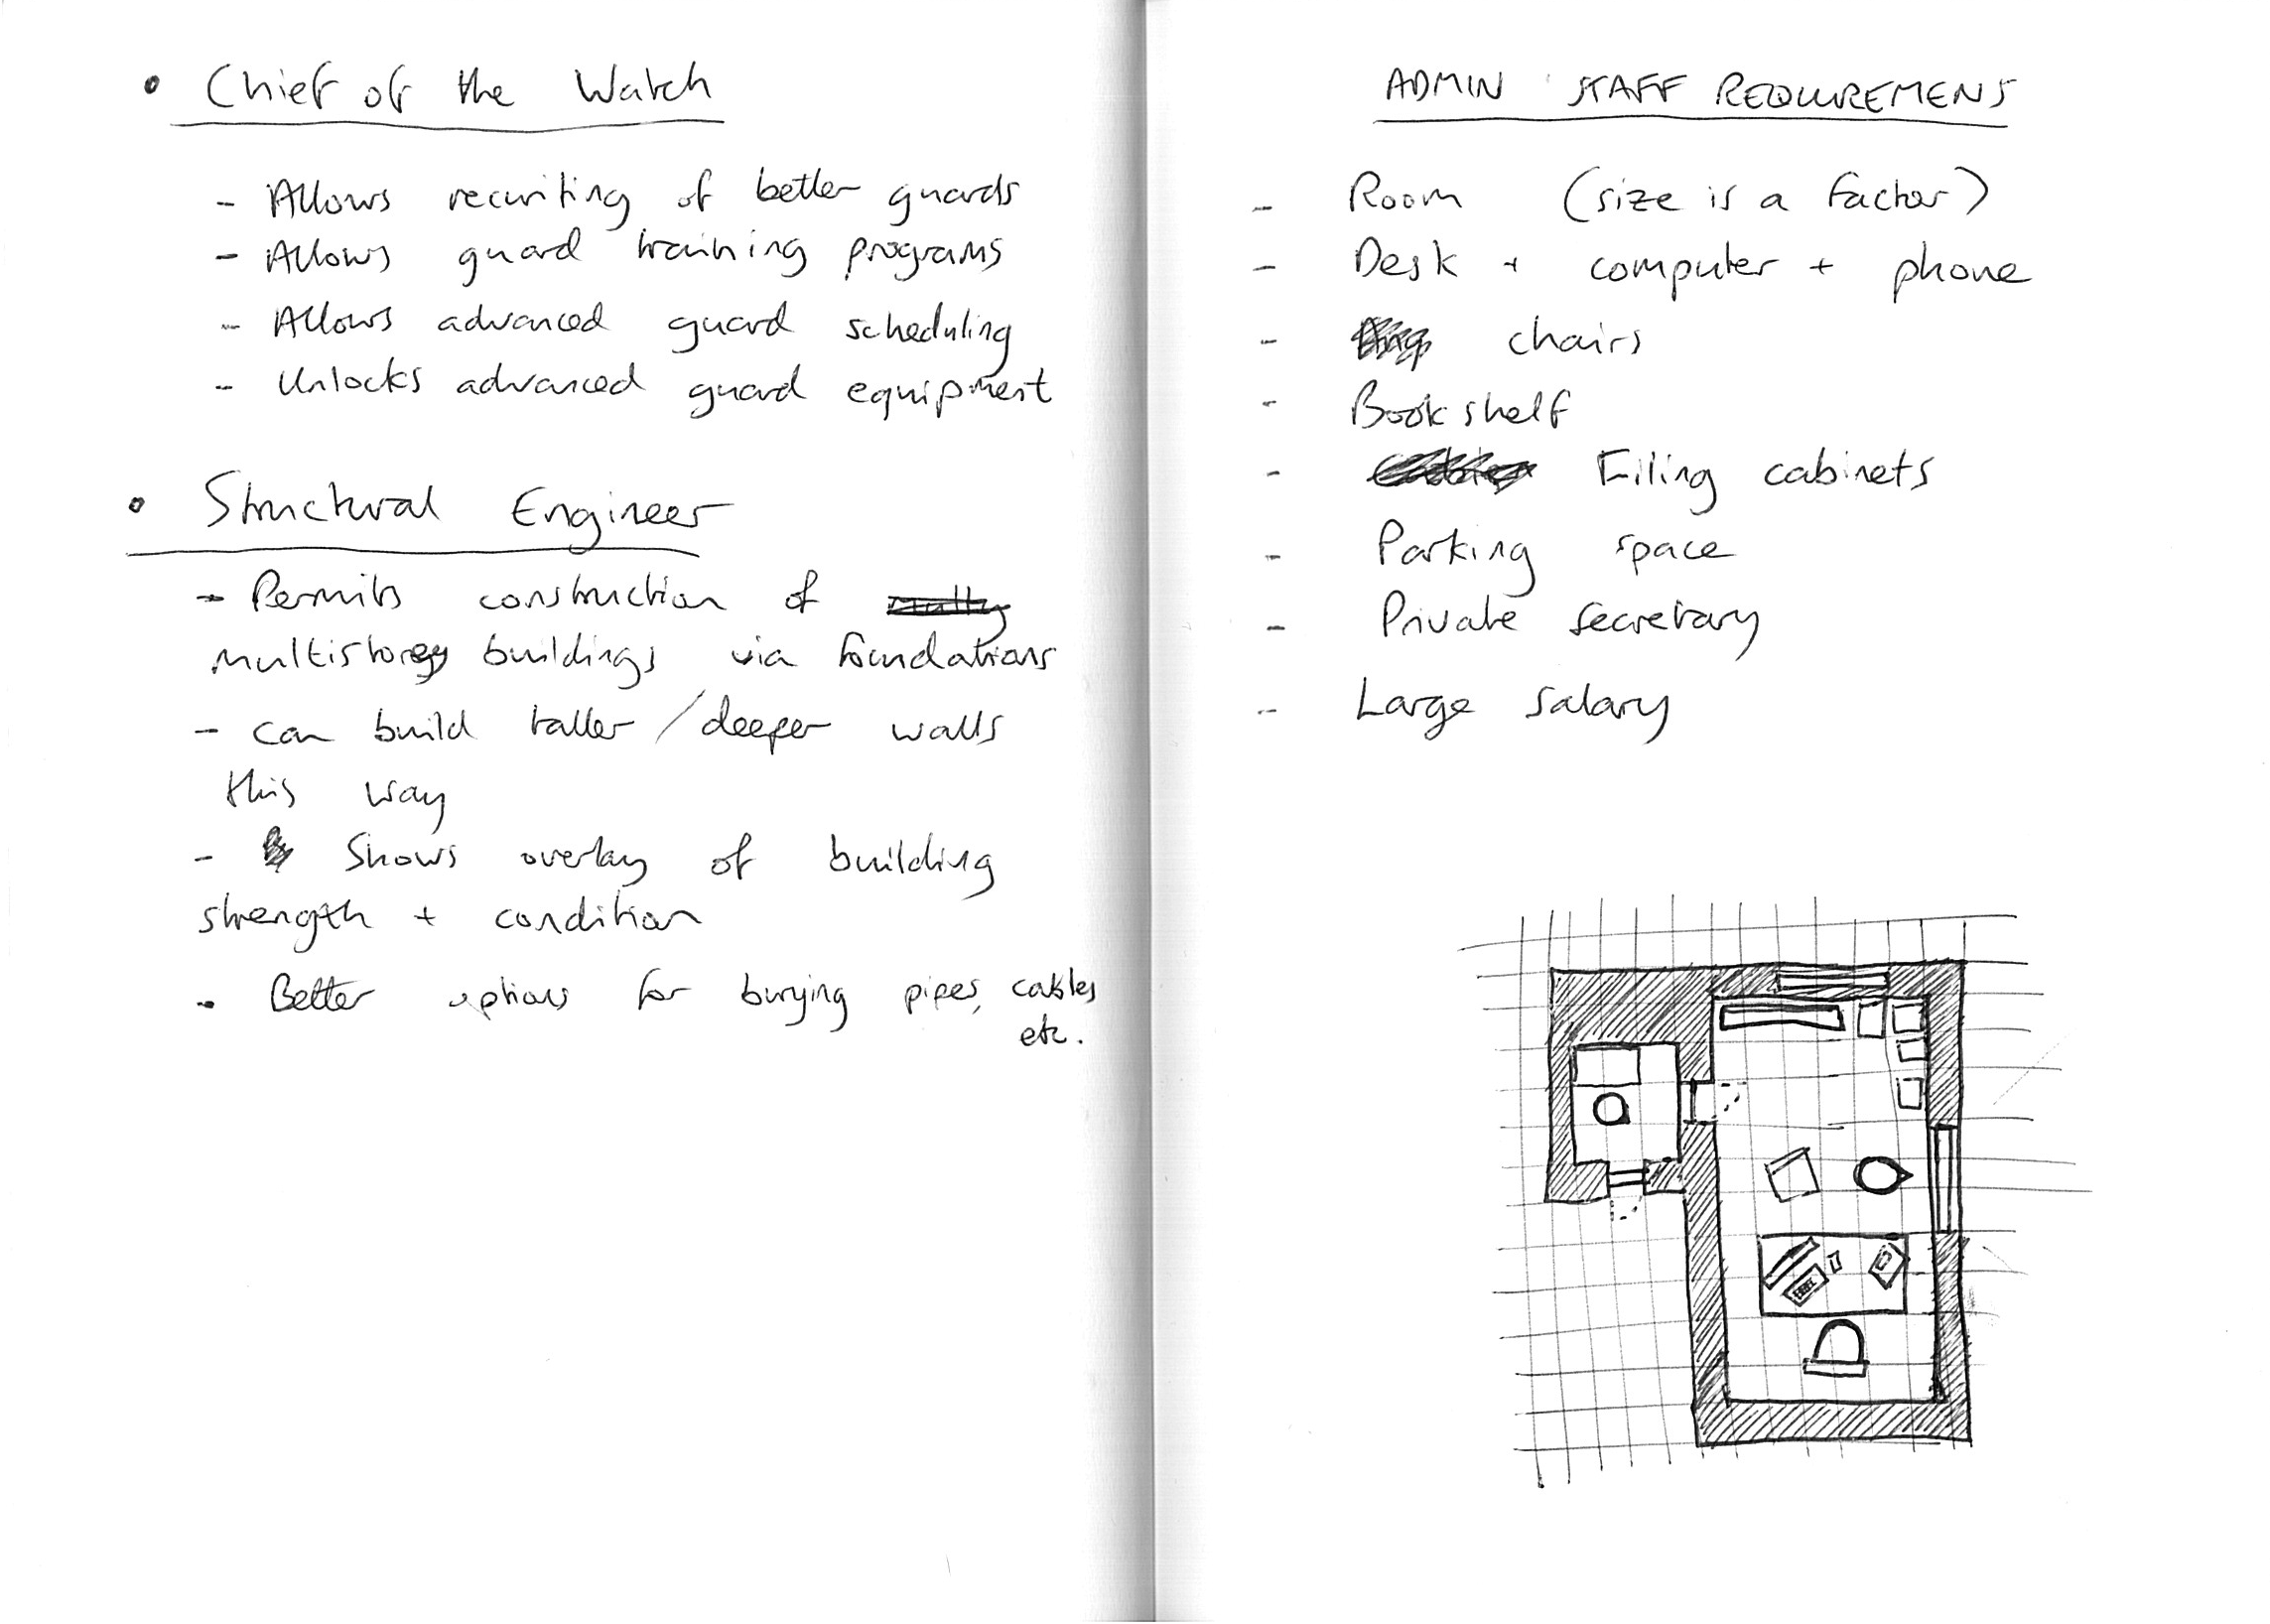 • Chief of the Watch
- Allows recruiting of better guards
- Allows guard training programs
- Allows advanced guard scheduling
- Unlocks advanced guard equipment
• Structural Engineer
- Permits construction of
multistorey buildings via foundations
- can build taller / deeper walls
this way
- Shows overlay of building
strength + condition
- Better options for burying pipes, cables
etc.
ADMIN STAFF REQUIREMENS
- Room (size is a factor)
- Desk + computer + phone
- chairs
- Bookshelf
- Filing cabinets
- Parking space
- Private secretary
- Large salary